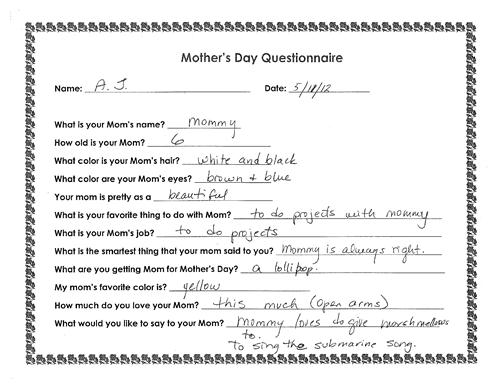 Mother's Day Questionnaire
Name: A.J. Date: 5/11/12
What is your Mom's name? Mommy
How old is your Mom? 6
What color is your Mom's hair? white and black
What color are your Mom's eyes? brown + blue
Your mom is pretty as a beautiful
What is your favorite thing to do with Mom? to do projects with mommy
What is your Mom's job? to do projects
What is the smartest thing that your mom said to you? Mommy is always right.
What are you getting Mom for Mother's Day? a lollipop.
My mom's favorite color is? yellow
How much do you love your Mom? this much (open arms)
What would you like to say to your Mom? Mommy loves do give marshmellows
to.
To sing the submarine song.